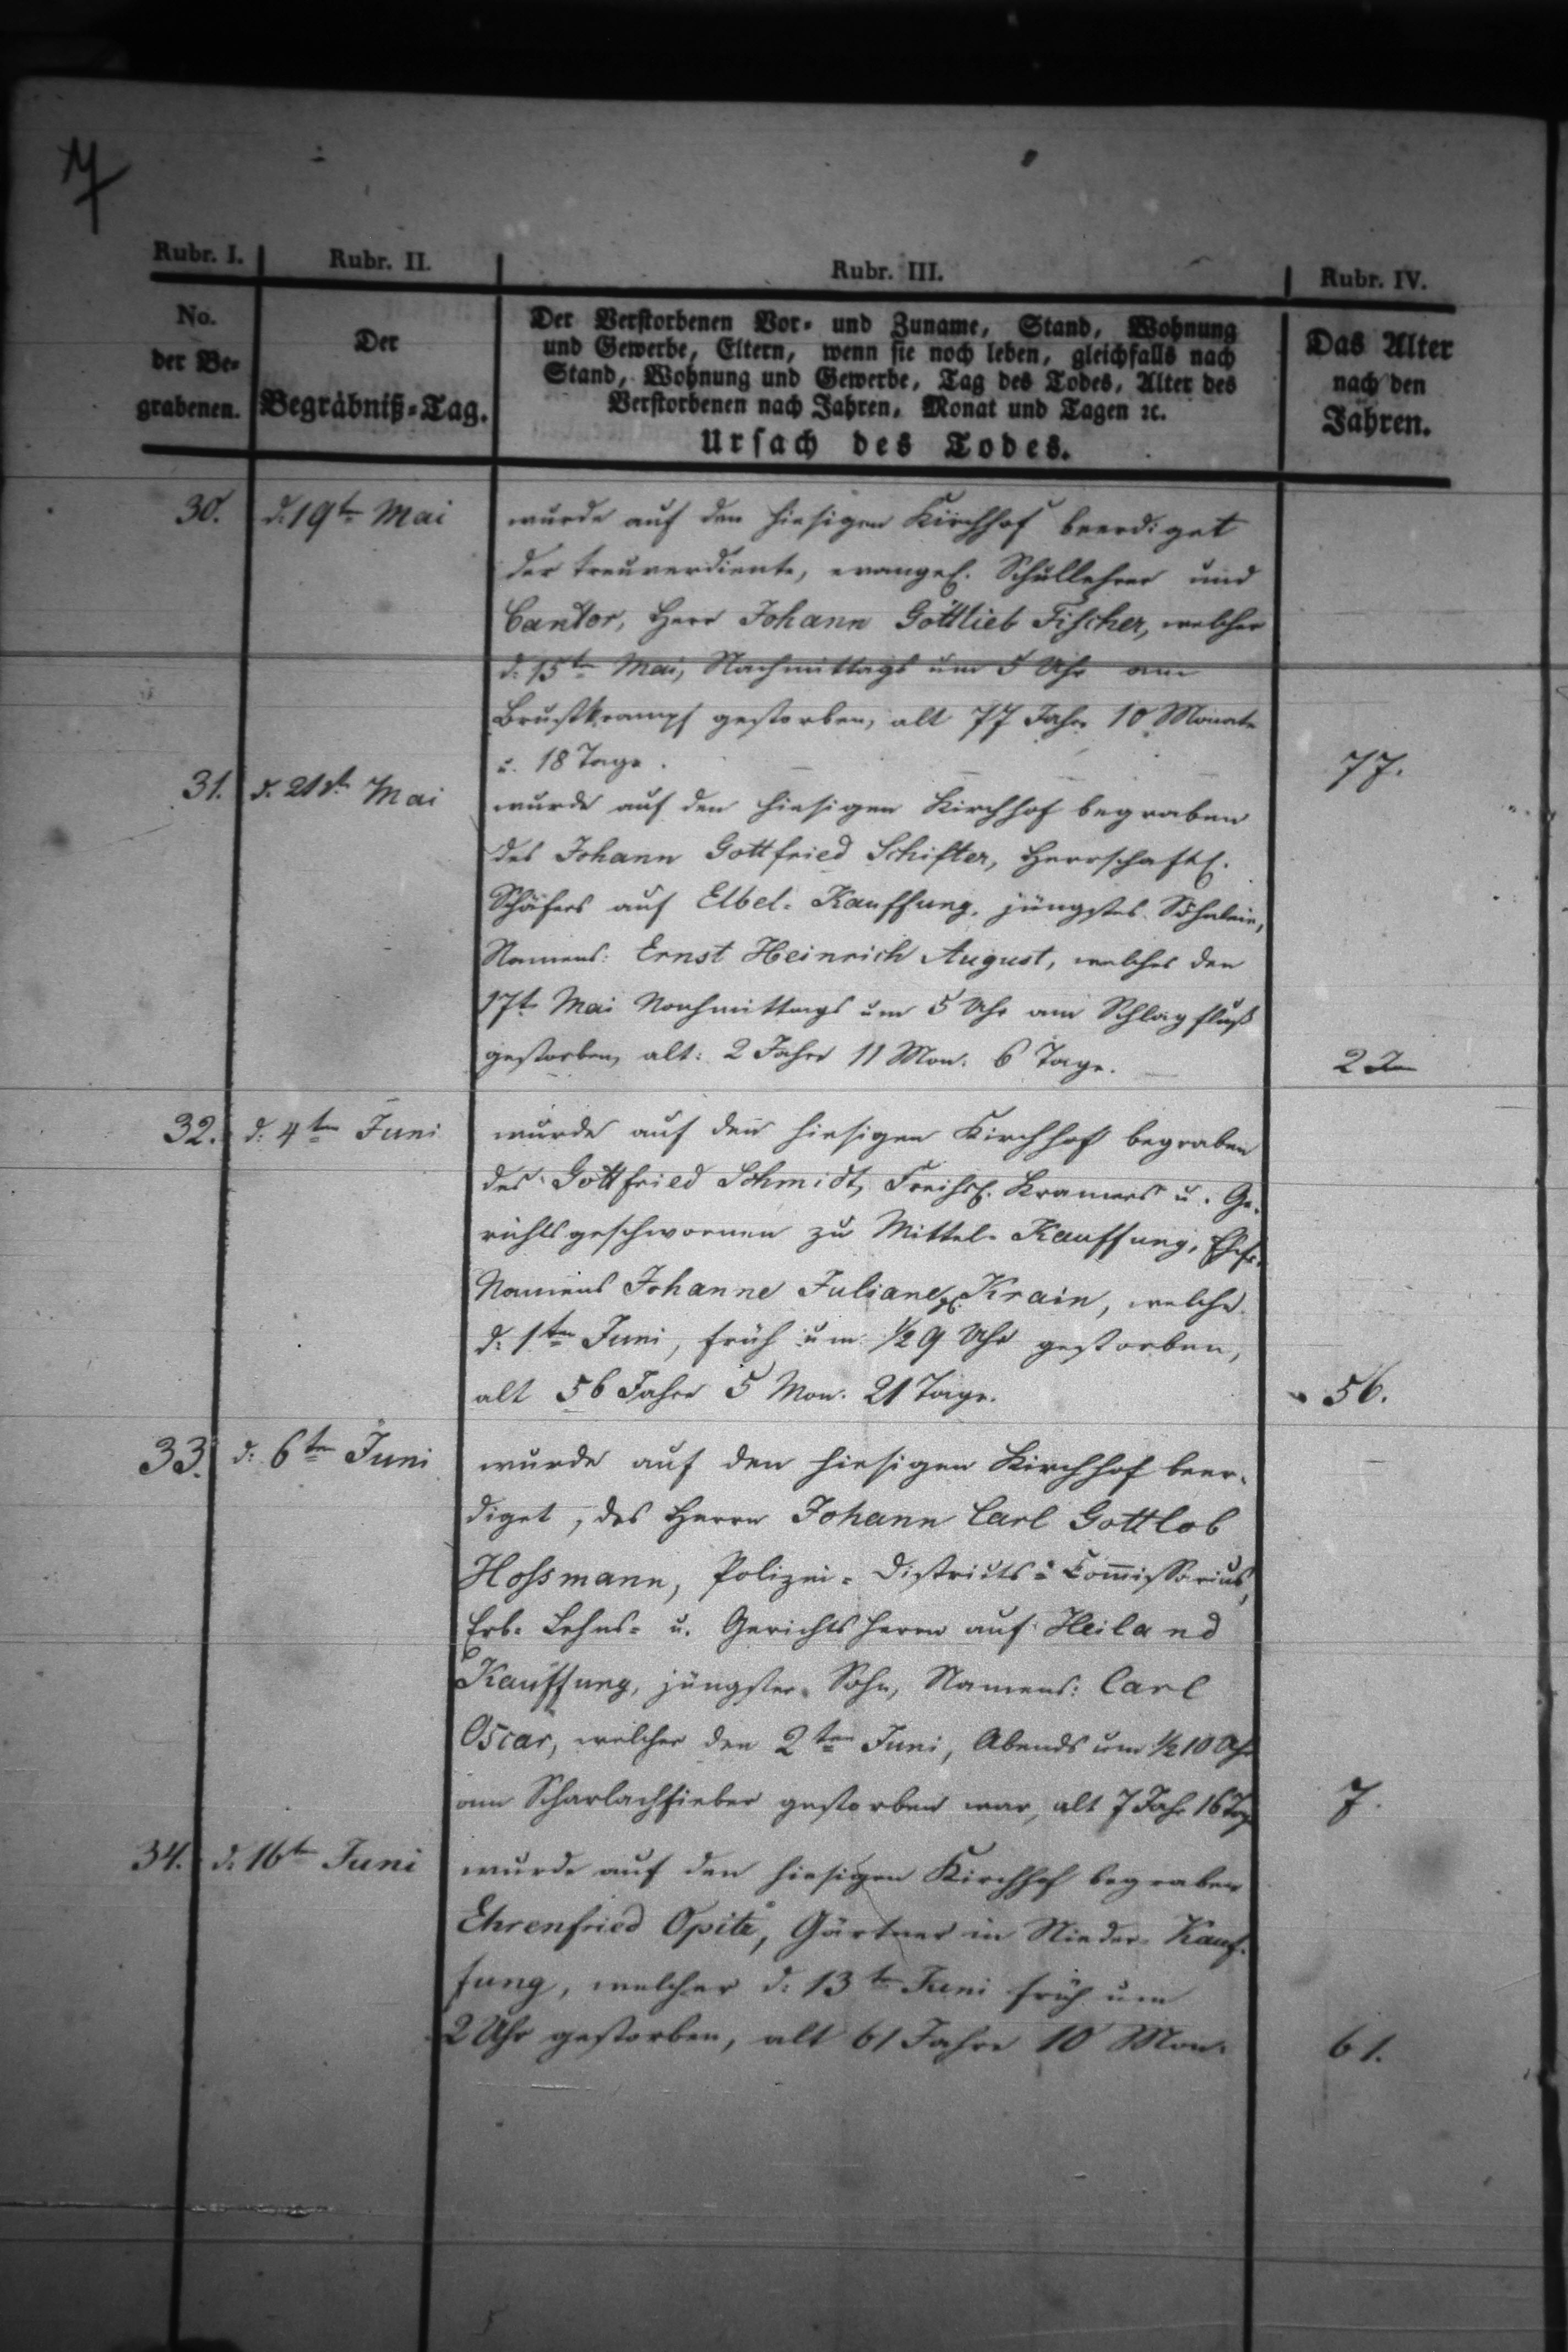 7
Rubr. I. Rubr. II. Rubr. III. Rubr. IV.
No. der Be- grabenen.
Der Begräbniß-Tag.
Der Verstorbenen Vor- und Zuname, Stand, Wohnung
und Gewerbe, Eltern, wenn sie noch leben, gleichfalls nach
Stand, Wohnung und Gewerbe, Tag des Todes, Alter des
Verstorbenen nach Jahren, Monat und Tagen ꝛc.
Ursach des Todes.
Das Alter
nach den
Jahren.
30. d. 19t Mai wurde auf den hiesigen Kirchhof beerdiget
der treuverdiente, evangel. Schullehrer und
Cantor, Herr Johann Gottlieb Fischer, welcher
d. 15ten Mai, Nachmittags um 5 Uhr am
Brustkrampf gestorben, alt 77 Jahr 10 Monate
u. 18 Tage. 77.
31. d. 21st Mai wurde auf den hiesigen Kirchhof begraben
des Johann Gottfried Schifter, herrschaftl.
Schäfers auf Elbel-Kauffung, jüngstes Söhnlein,
Namens: Ernst Heinrich August, welches den
17t Mai Nachmittags um 5 Uhr am Schlagfluß
gestorben, alt: 2 Jahre 11 Mon. 6 Tage. 2
32. d. 4ten Juni wurde auf den hiesigen Kirchhof begraben
des Gottfried Schmidt, Kramers u. Ge-
richtsgeschwornen zu Mittel-Kauffung, Ehefr.
Namens Johanne Juliane Krain, welche
d. 1ten Juni, früh um 1/2 9 Uhr gestorben,
alt 56 Jahre 5 Mon. 21 Tage. 56.
33. d. 6ten Juni wurde auf den hiesigen Kirchhof beer-
diget, des Herrn Johann Carl Gottlob
Hoffmann, Polizei-Districts-Com̄issarius,
Erb- Lehns- u. Gerichtsherrn auf Heiland
Kauffung, jüngster Sohn, Namens: Carl
Oscar, welcher den 2ten Juni, Abends um 1/2 10 Uhr
am Scharlachfieber gestorben war, alt 7 Jahr 16 Tag 7.
34. d. 16t Juni wurde auf den hiesigen Kirchhof begraben
Ehrenfried Opitz, Gärtner in Nieder-Kauf-
fung, welcher d. 13t Juni früh um
2 Uhr gestorben, alt 61 Jahre 10 Mon. 61.